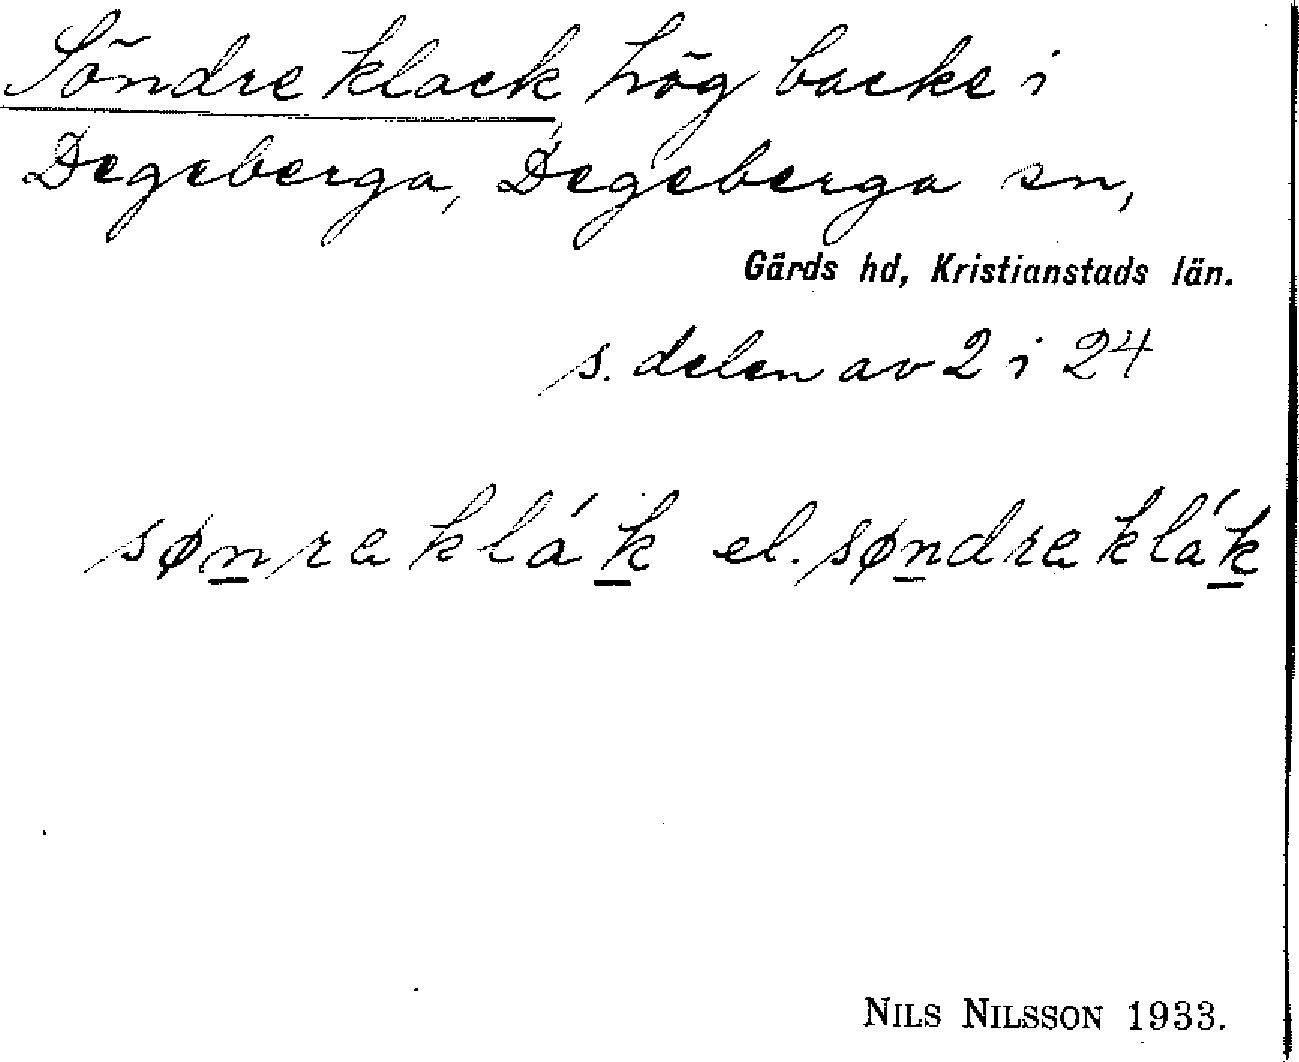 Söndre klack hög backe i
Degeberga, Degeberga sn,
Gärds hd, Kristianstads län.
s. delen av 2 i 24
sønra klák el. søndra klák
NILS NILSSON 1933.